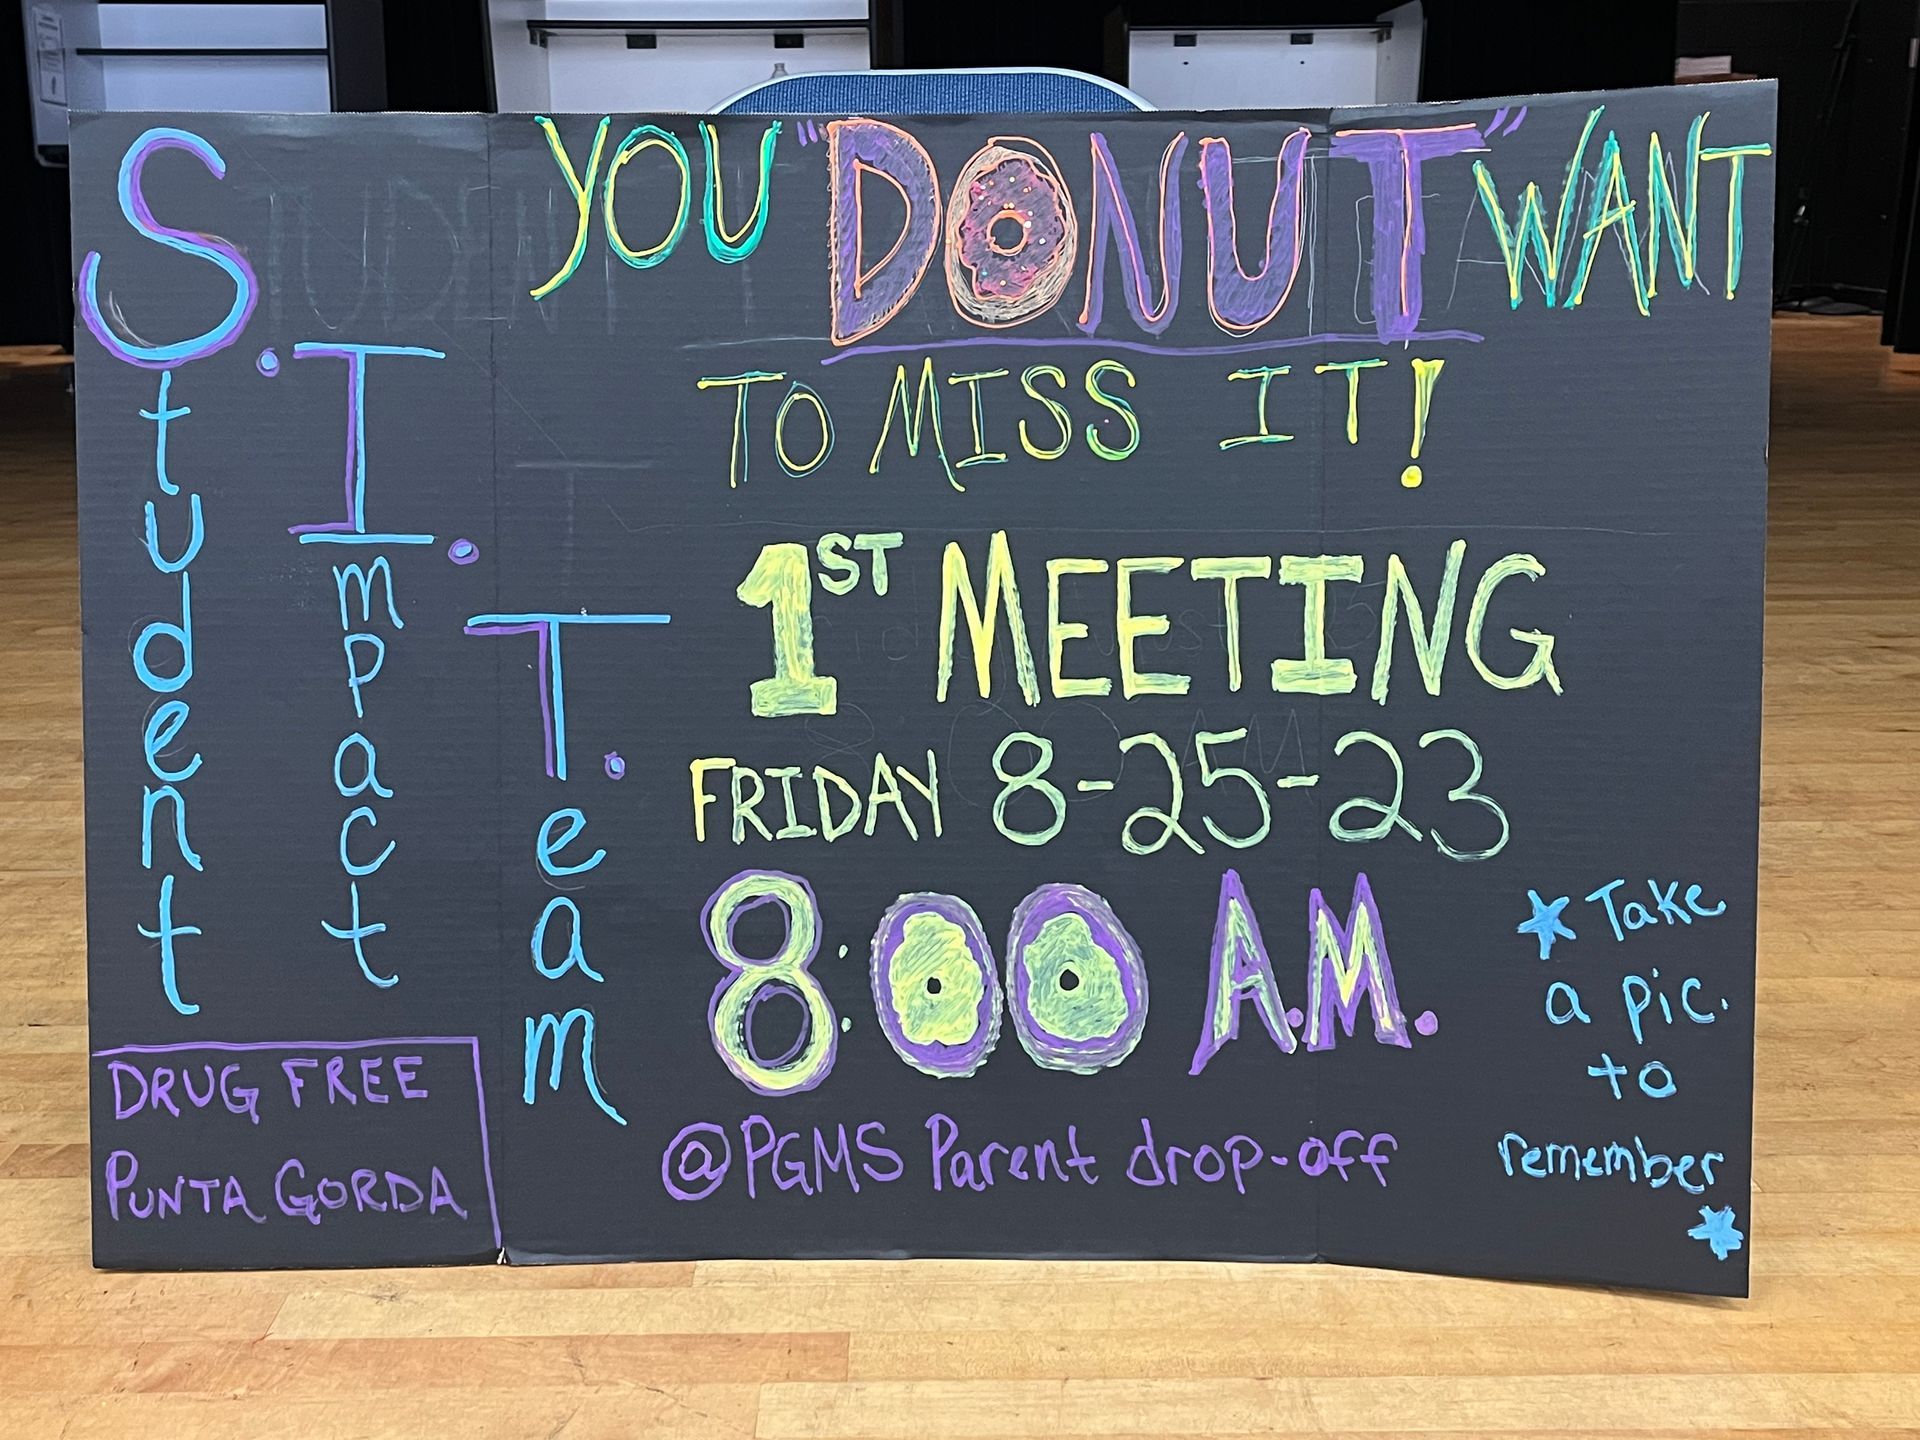 Student
Impact
Team
DRUG FREE
PUNTA GORDA
YOU "DONUT" WANT
TO MISS IT!
1ST MEETING
FRIDAY 8-25-23
8:00 A.M.
@PGMS Parent drop-off
Take
a pic.
to
remember